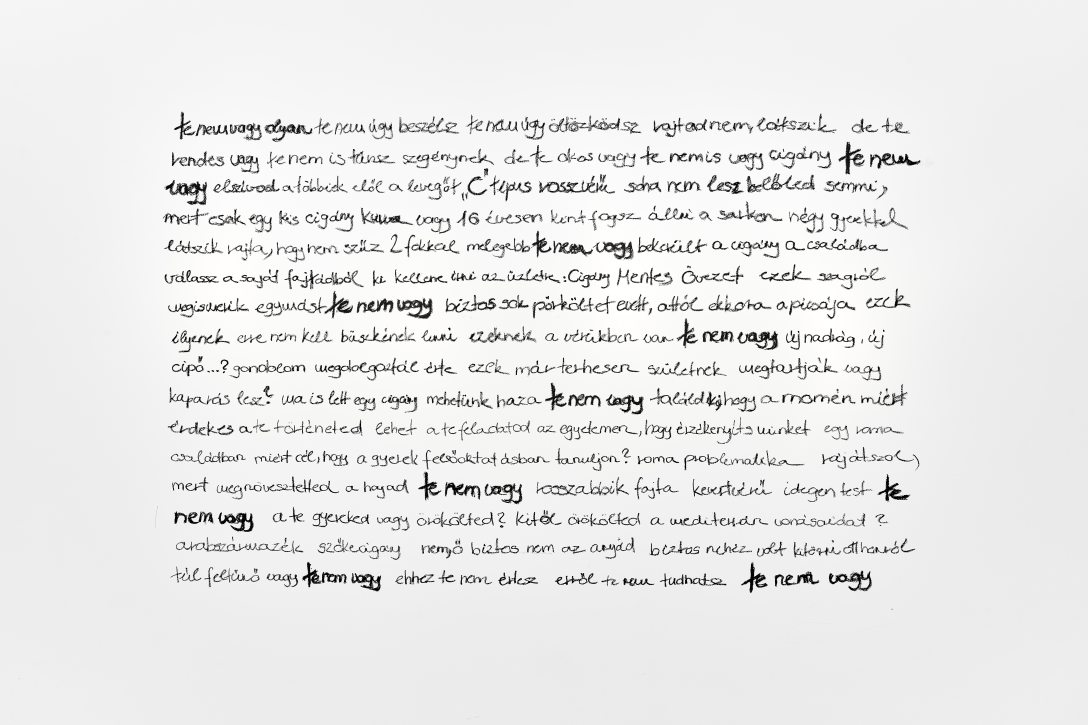 te nem vagy olyan te nem úgy beszélsz te nem úgy öltözködsz rajtad nem látszik de te
rendes vagy te nem is tűnsz szegénynek de te okos vagy te nem is vagy cigány te nem
vagy elszívod a többiek elől a levegőt „C" típus rosszvérű soha nem lesz belőled semmi,
mert csak egy kis cigány kurva vagy 16 évesen kint fogsz állni a sarkon négy gyerekkel
látszik rajta, hogy nem szűz 2 fokkal melegebb te nem vagy bekerült a cigány a családba
válassz a saját fajtádból ki kellene írni az üzletre: Cigány Mentes Övezet ezek szagról
megismerik egymást te nem vagy biztos sok pörköltet evett, attól ekkora a picsája ezek
ilyenek erre nem kell büszkének lenni ezeknek a vérükben van te nem vagy új nadrág, új
cipő...? gondolom megdolgoztál érte ezek már terhesen születnek megtartják vagy
kaparás lesz? ma is lett egy cigány mehetünk haza te nem vagy találd ki, hogy a román miért
érdekes a te történeted lehet a te feladatod az egyetemen, hogy érzékenyíts minket egy roma
családban miért cél, hogy a gyerek felsőoktatásban tanuljon? roma problematika rájátszol,
mert megnövesztetted a hajad te nem vagy rosszabbik fajta kevertvérű idegen test te
nem vagy a te gyereked vagy örökölted? kitől örökölted a mediterrán vonásaidat?
arabszármazék szőkecigány nem, ő biztos nem az anyád biztos nehéz volt kitörni otthonról
túl feltűnő vagy te nem vagy ehhez te nem értesz erről te nem tudhatsz te nem vagy